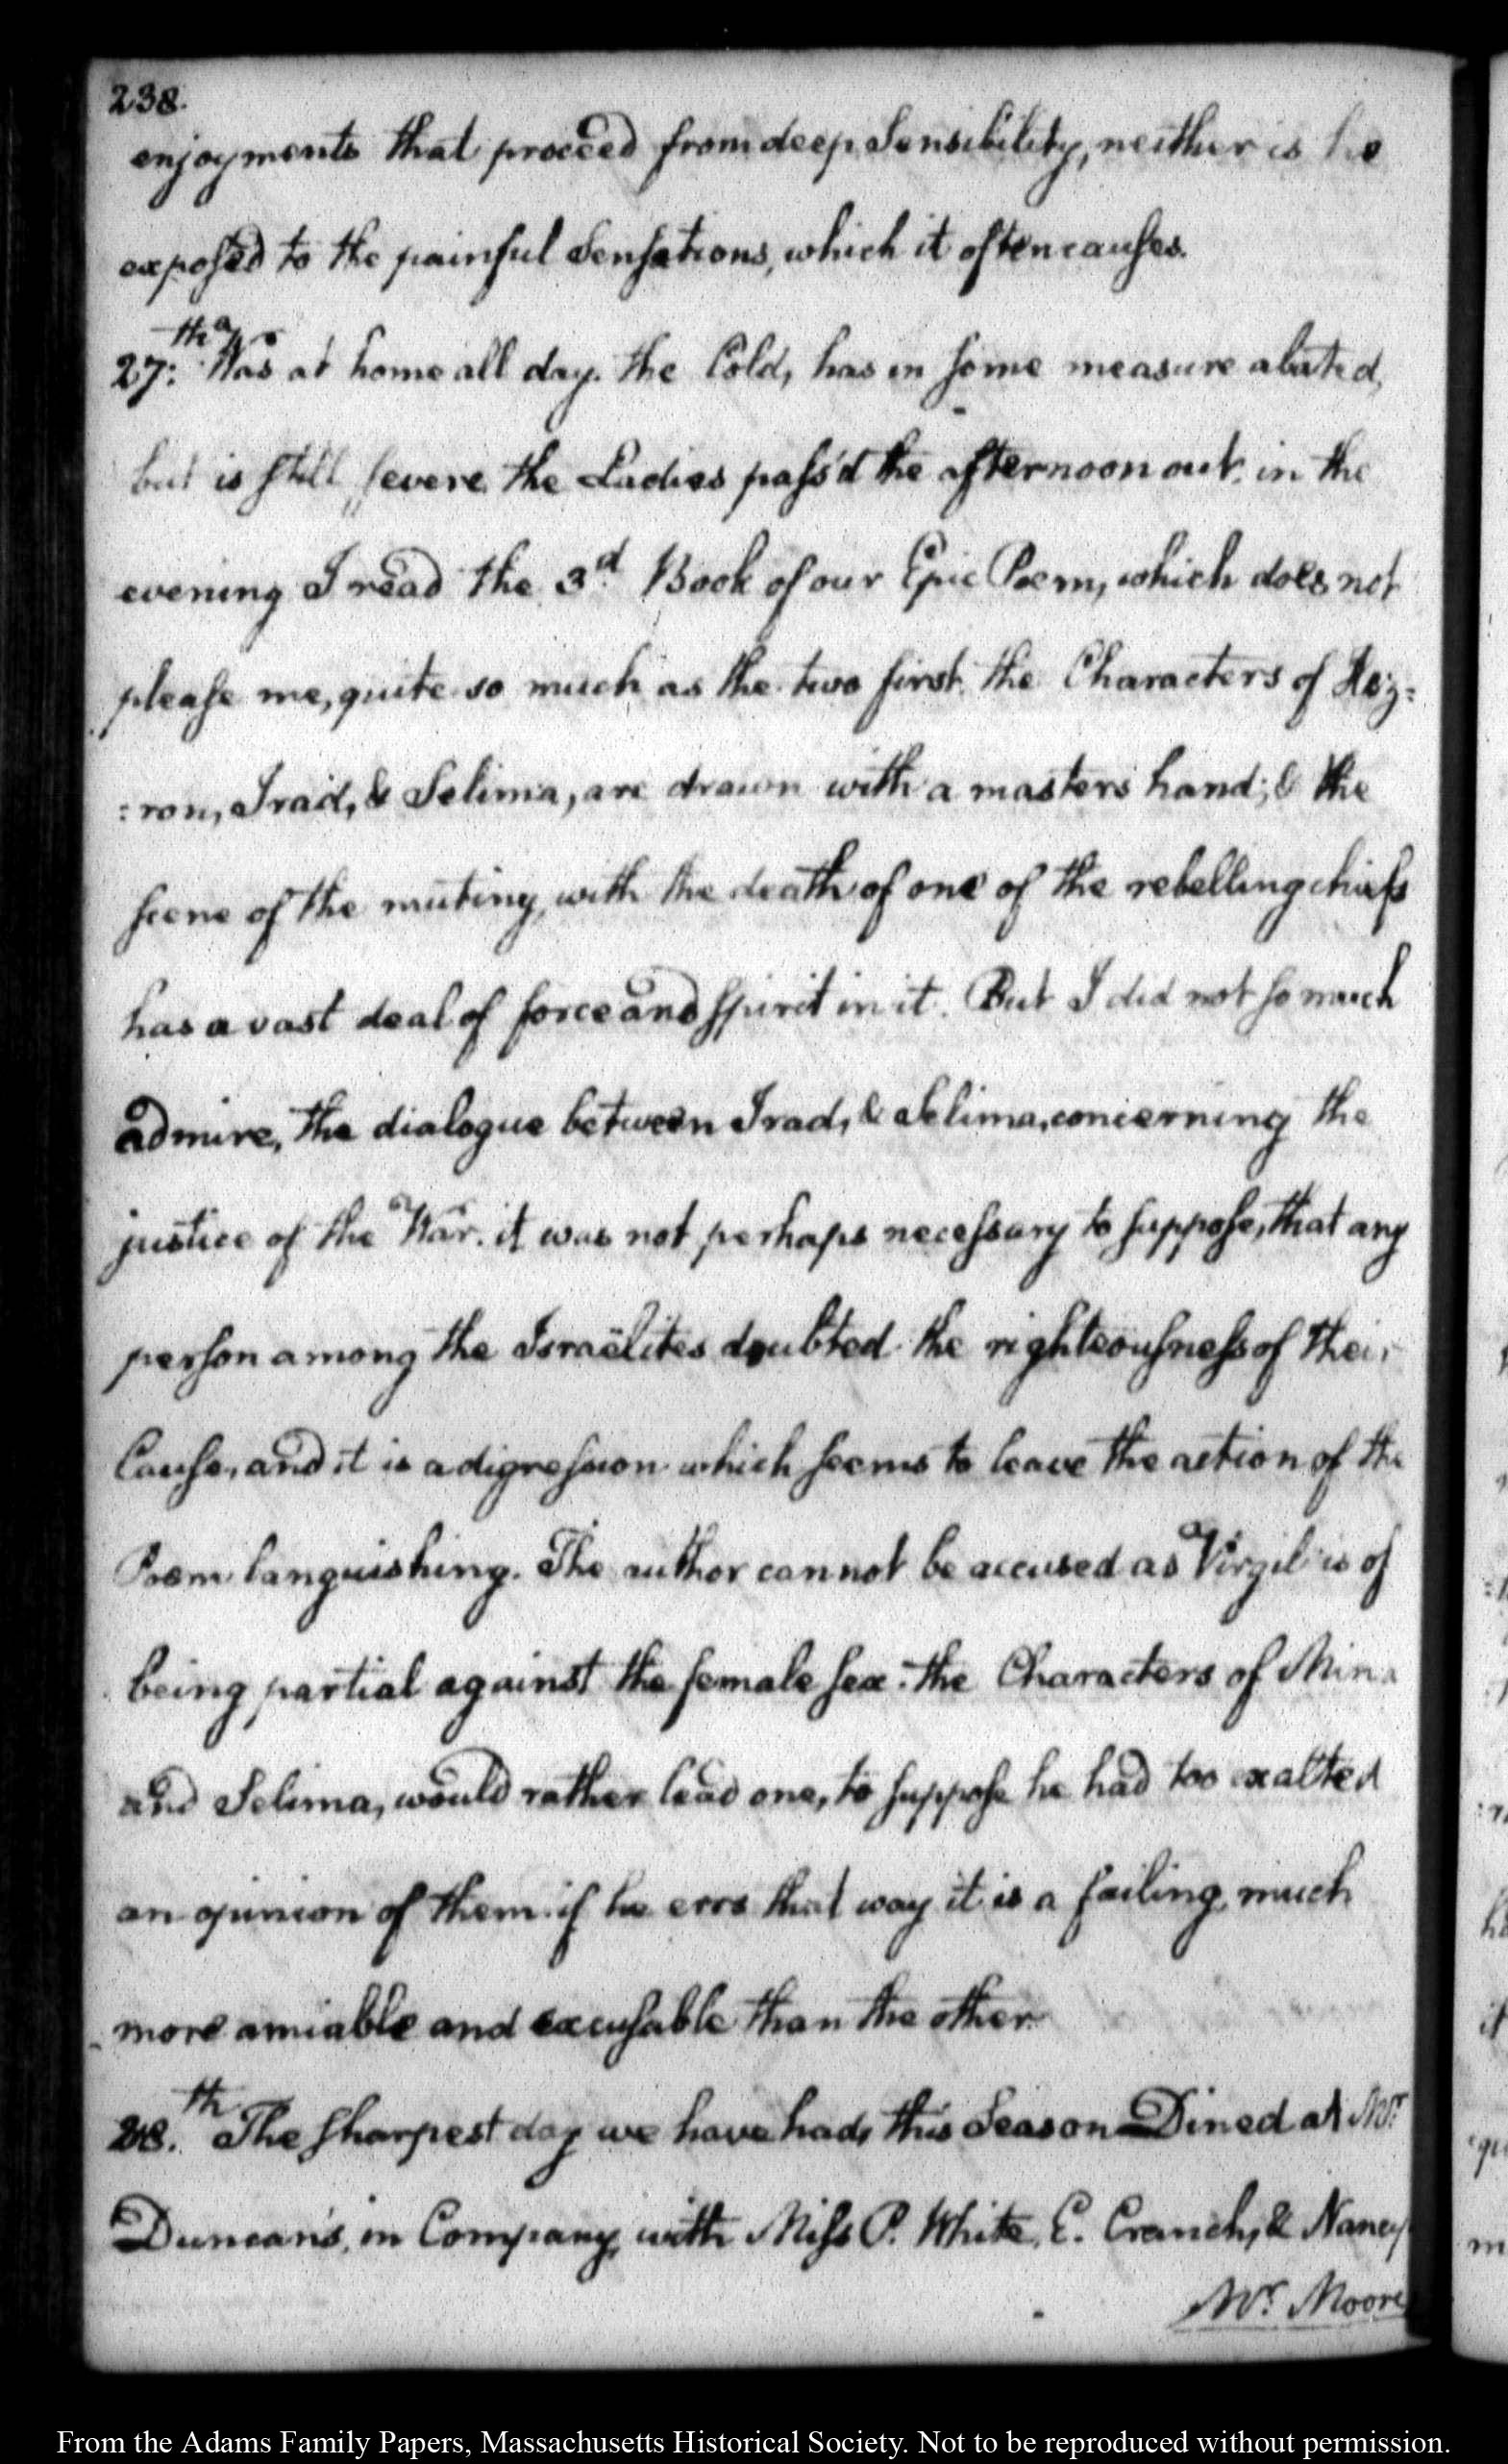 238.
enjoyments that proceed from deep Sensibility, neither is he
exposed to the painful Sensations, which it often causes.
27:th Was at home all day. the Cold, has in some measure abated,
but is still severe. the Ladies pass'd the afternoon out. in the
evening I read the 3.d Book of our Epic Poem, which does not
please me, quite so much as the two first. the Characters of Hez:
:ron, Irad, & Selima, are drawn with a masters hand; & the
scene of the mutiny, with the death of one of the rebelling chiefs
has a vast deal of force and spirit in it. But I did not so much
admire, the dialogue between Irad, & Selima, concerning the
justice of the War. it was not perhaps necessary to suppose, that any
person among the Israëlites doubted the righteousness of their
Cause, and it is a digression which seems to leave the action of the
Poem languishing. The author cannot be accused as Virgil is of
being partial against the female sex: the Characters of Mina
and Selima, would rather lead one, to suppose he had too exalted
an opinion of them. if he errs that way it is a failing, much
more amiable and excusable than the other.
28.th The sharpest day we have had, this Season Dined at Mr.
Duncan's, in Company, with Miss P. White, E. Cranch, & Nancy
Mr. Moore
From the Adams Family Papers, Massachusetts Historical Society. Not to be reproduced without permission.